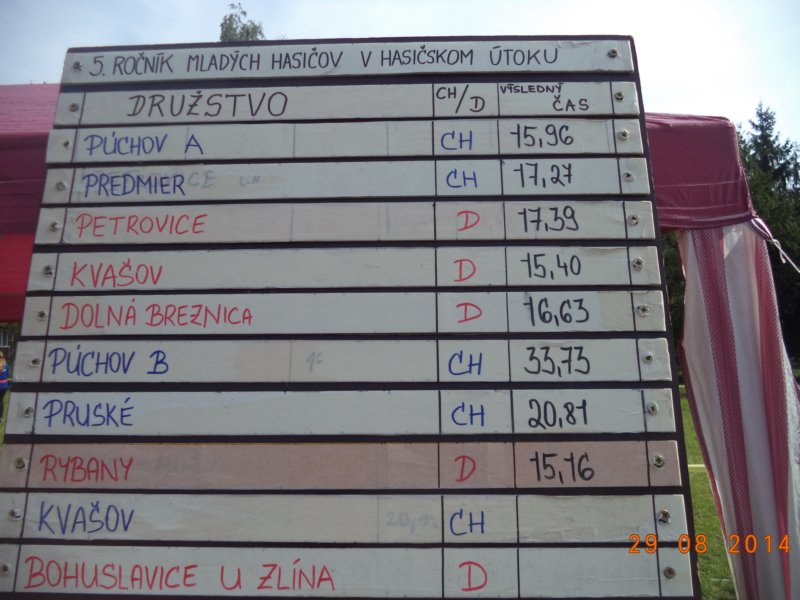 5. ROČNÍK MLADÝCH HASIČOV V HASIČSKOM ÚTOKU
DRUŽSTVO CH/D VÝSLEDNÝ ČAS
PÚCHOV A CH 15,96
PREDMIER CH 17,27
PETROVICE D 17,39
KVAŠOV D 15,40
DOLNÁ BREZNICA D 16,63
PÚCHOV B CH 33,73
PRUSKÉ CH 20,81
RYBANY D 15,16
KVAŠOV CH
BOHUSLAVICE U ZLÍNA D
29 08 2014